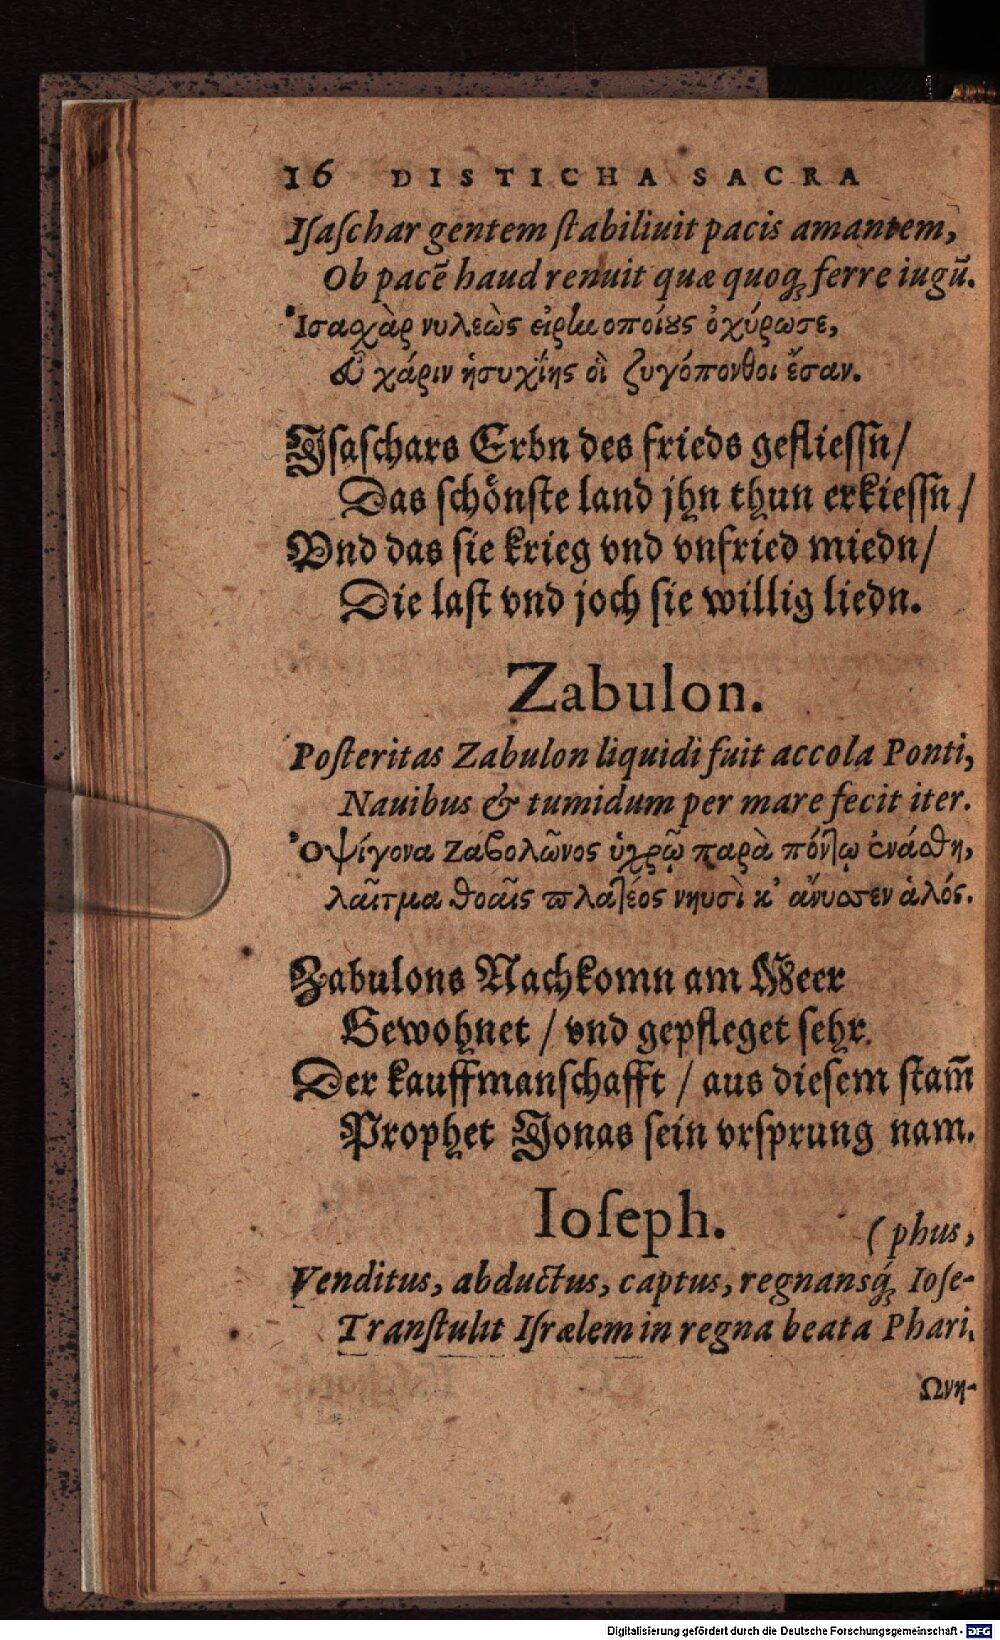 16 DISTICHA SACRA
Iſaſchar gentem ſtabiliuit pacis amantem,
Ob pacē haud renuit quæ quoq; ferre iugū.
Ἰσαχὰρ νυλεὼς εἰρηνοποίους ὀχύρωσε,
Οὗ χάριν ἡσυχΐης οἳ ζυγόπονθοι ἔσαν.
Iſaſchars Erbn des frieds geflieſſn/
Das ſchönſte land jhn thun erkieſſn/
Vnd das ſie krieg vnd vnfried miedn/
Die laſt vnd joch ſie willig liedn.
Zabulon.
Poſteritas Zabulon liquidi fuit accola Ponti,
Nauibus & tumidum per mare fecit iter.
Ὀψίγονα Ζαβολῶνος ὑγρῷ παρὰ πόντῳ ἐνάσθη,
λαῖτμα θοαῖς πλατέος νηυσὶ κ' ἄνυσεν ἁλός.
Zabulons Nachkomn am Meer
Gewohnet / vnd gepfleget ſehr
Der kauffmanſchafft / aus dieſem ſtam̄
Prophet Jonas ſein vrſprung nam.
Ioſeph.
(phus,
Venditus, abductus, captus, regnansq; Ioſe-
Tranſtulit Iſrælem in regna beata Phari.
Ωνη-
Digitalisierung gefördert durch die Deutsche Forschungsgemeinschaft - DFG